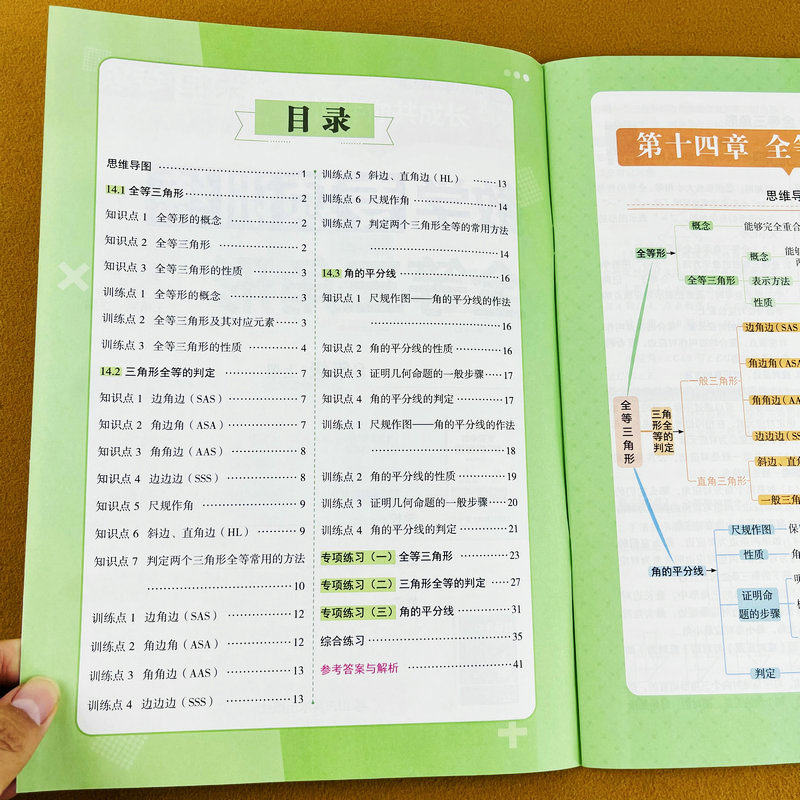 目录
思维导图 1
14.1 全等三角形 2
知识点 1 全等形的概念 2
知识点 2 全等三角形 2
知识点 3 全等三角形的性质 3
训练点 1 全等形的概念 3
训练点 2 全等三角形及其对应元素 3
训练点 3 全等三角形的性质 4
14.2 三角形全等的判定 7
知识点 1 边角边（SAS） 7
知识点 2 角边角（ASA） 7
知识点 3 角角边（AAS） 8
知识点 4 边边边（SSS） 8
知识点 5 尺规作角 9
知识点 6 斜边、直角边（HL） 9
知识点 7 判定两个三角形全等常用的方法
10
训练点 1 边角边（SAS） 12
训练点 2 角边角（ASA） 12
训练点 3 角角边（AAS） 13
训练点 4 边边边（SSS） 13
训练点 5 斜边、直角边（HL） 13
训练点 6 尺规作角 14
训练点 7 判定两个三角形全等的常用方法
14
14.3 角的平分线 16
知识点 1 尺规作图——角的平分线的作法
16
知识点 2 角的平分线的性质 16
知识点 3 证明几何命题的一般步骤 17
知识点 4 角的平分线的判定 17
训练点 1 尺规作图——角的平分线的作法
18
训练点 2 角的平分线的性质 19
训练点 3 证明几何命题的一般步骤 20
训练点 4 角的平分线的判定 21
专项练习（一） 全等三角形 23
专项练习（二） 三角形全等的判定 27
专项练习（三） 角的平分线 31
综合练习 35
参考答案与解析 41
第十四章 全
思维导
概念
能够完全重合
全等形
概念
全等三角形
表示方法
性质
边角边（SAS
角边角（ASA
一般三角形
角角边（AA
全等三角形
三角
形全
等的
判定
边边边（SS
斜边、直角
直角三角形
一般三角
尺规作图
性质
角的平分线
证明命
题的步骤
判定